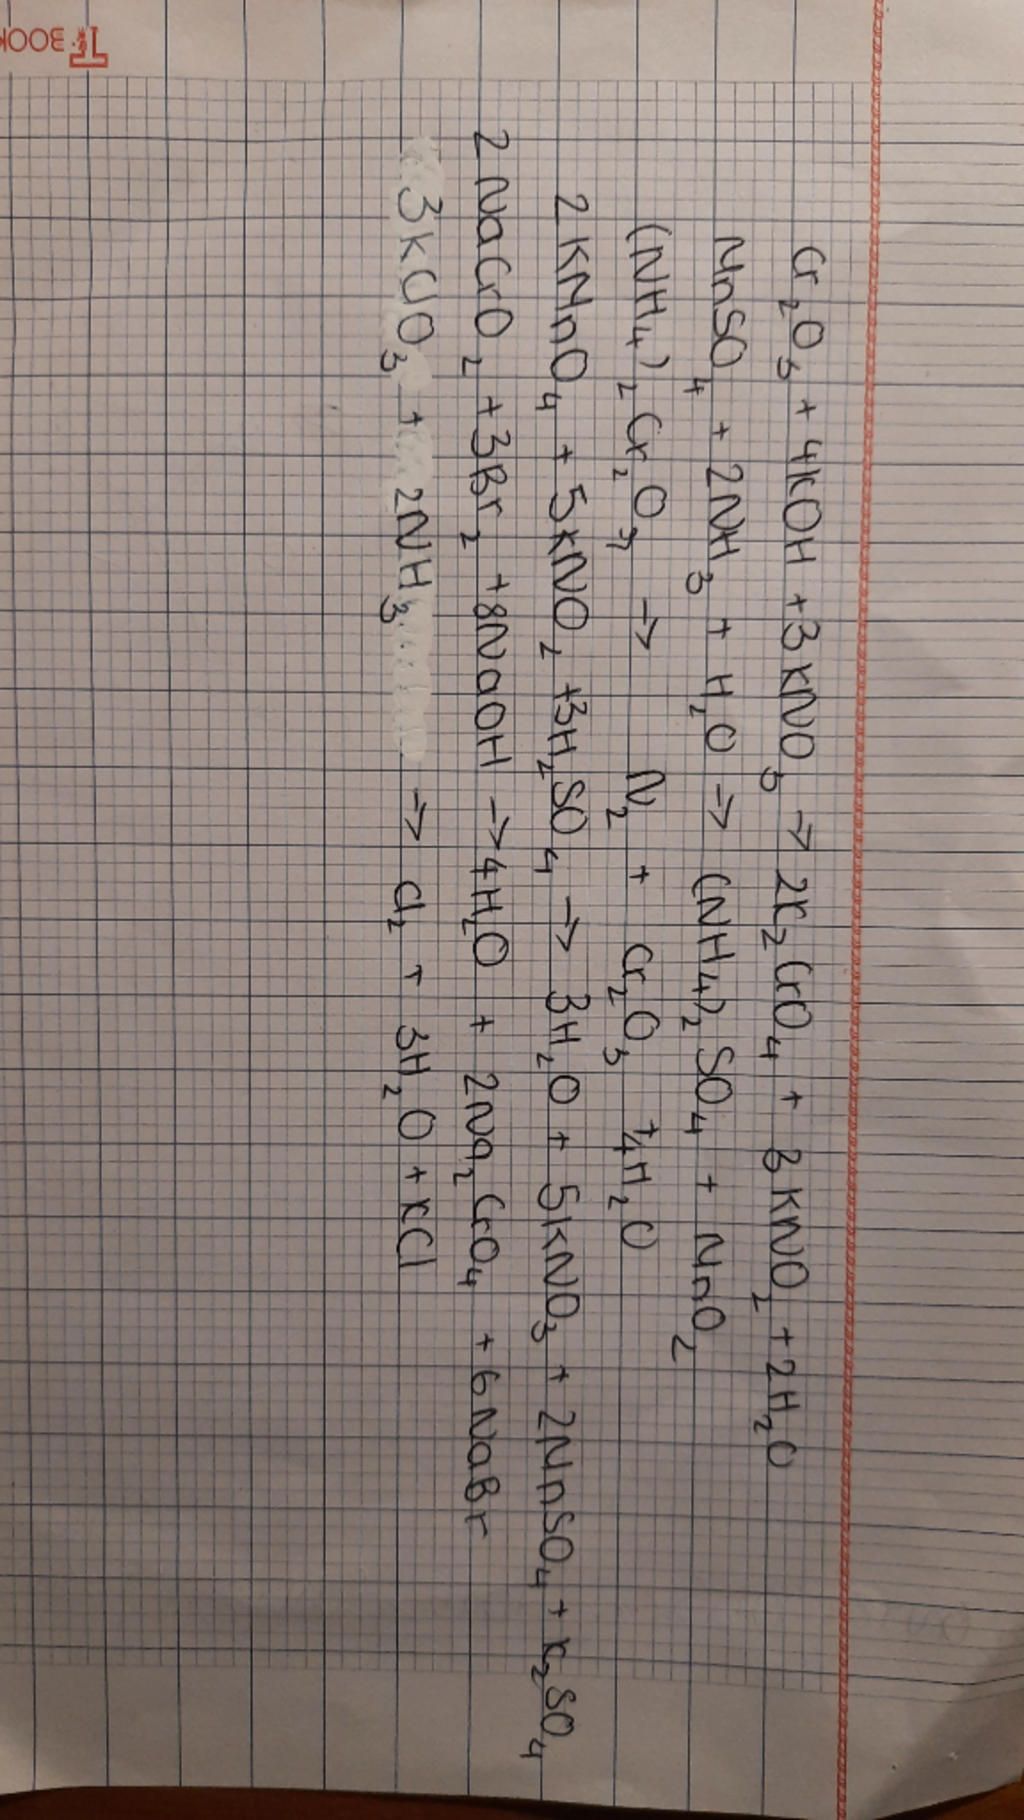 Cr₂O₃ + 4KOH + 3KNO₃ → 2K₂CrO₄ + 3KNO₂ + 2H₂O
MnSO₄ + 2NH₃ + H₂O → (NH₄)₂SO₄ + MnO₂
(NH₄)₂Cr₂O₇ → N₂ + Cr₂O₃ + 4H₂O
2KMnO₄ + 5KNO₂ + 3H₂SO₄ → 3H₂O + 5KNO₃ + 2MnSO₄ + K₂SO₄
2NaCrO₂ + 3Br₂ + 8NaOH → 4H₂O + 2Na₂CrO₄ + 6NaBr
3KClO₃ + 2NH₃ → Cl₂ + 3H₂O + KCl